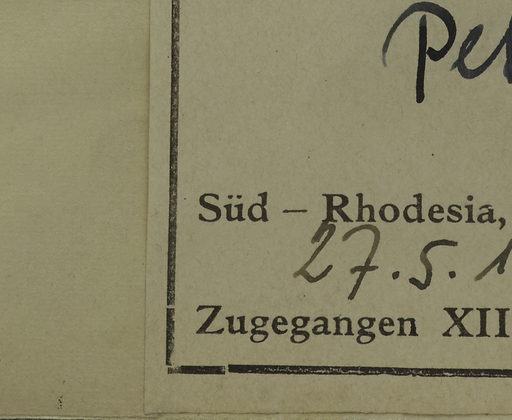 Süd – Rhodesia,
27.5.1
Zugegangen XII